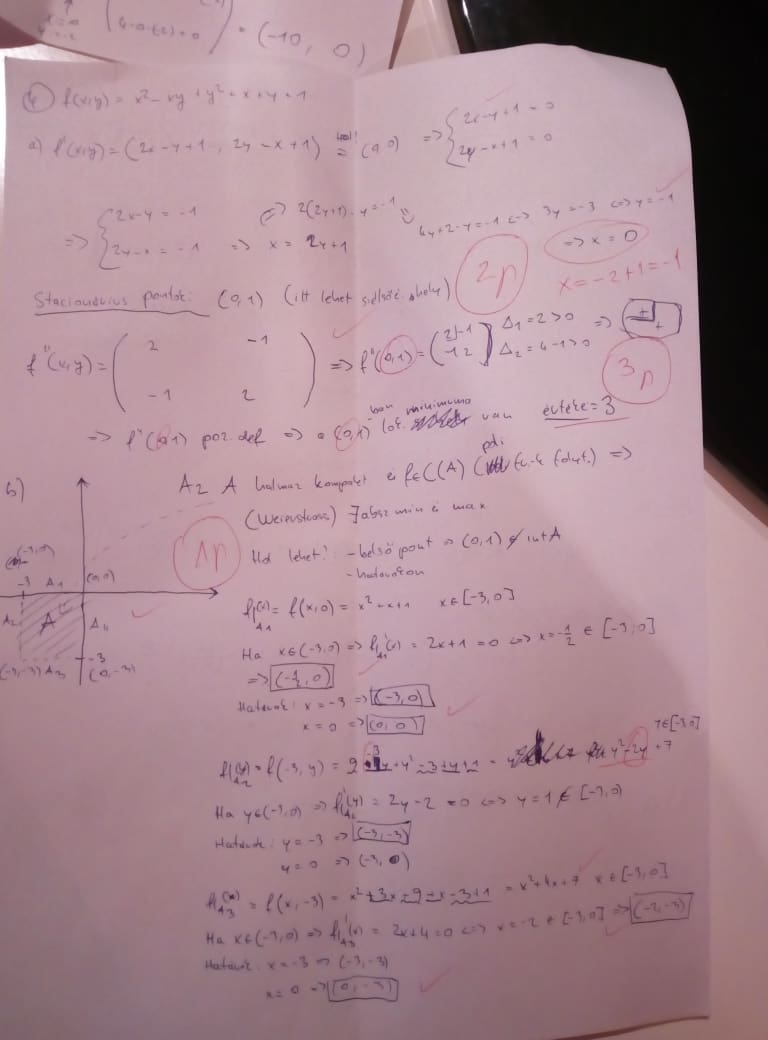 (4-0-(2)=0) = (-10, 0)
4, f(x,y) = x²-xy+y²+x+y+1
a) f'(x,y) = (2x-y+1, 2y-x+1) = (0,0) => { 2x-y+1=0
2y-x+1=0
=> { 2x-y=-1 => 2(2y+1)-y=-1
4y+2-y=-1 <=> 3y=-3 <=> y=-1
2y-x=-1 => x=2y+1
=> x=0
2p
x=-2+1=-1
Stacionárius pontok: (0,1) (itt lehet szélsőé. hely)
f''(x,y) = ( 2 -1
-1 2 ) => f''(0,1) = ( 2 -1
-1 2 ) Δ1=2>0
Δ2=4-1>0 =>
3p
=> f''(0,1) poz. def => a (0,1)-ban lok. minimuma van értéke=3
b) Az A halmaz kompakt és f∈C(A) (pl. fv-k folyt.) =>
(Weierstrass) ∃ absz min és max
1p
Hol lehet? - belső pont => (0,1) ∉ int A
- határokon
(-3,0) -3 A1 (0,0)
A2 A A4
(-3,-3) A3 (0,-3) -3
f|A1(x) = f(x,0) = x²+x+1 x∈[-3,0]
Ha x∈(-3,0) => f|A1'(x) = 2x+1 = 0 <=> x=-1/2 ∈ [-3,0]
=> (-1/2, 0)
Határok: x=-3 => (-3,0)
x=0 => (0,0)
f|A2(y) = f(-3,y) = 9+3y+y²-3+y+1 = y²-2y+7 y∈[-3,0]
-3
Ha y∈(-3,0) => f|A2'(y) = 2y-2=0 <=> y=1 ∉ [-3,0]
Határok: y=-3 => (-3,-3)
y=0 => (-3,0)
f|A3(x) = f(x,-3) = x²+3x+9+x-3+1 = x²+4x+7 x∈[-3,0]
Ha x∈(-3,0) => f|A3'(x) = 2x+4=0 <=> x=-2 ∈ [-3,0] => (-2,-3)
Határok: x=-3 => (-3,-3)
x=0 => (0,-3)